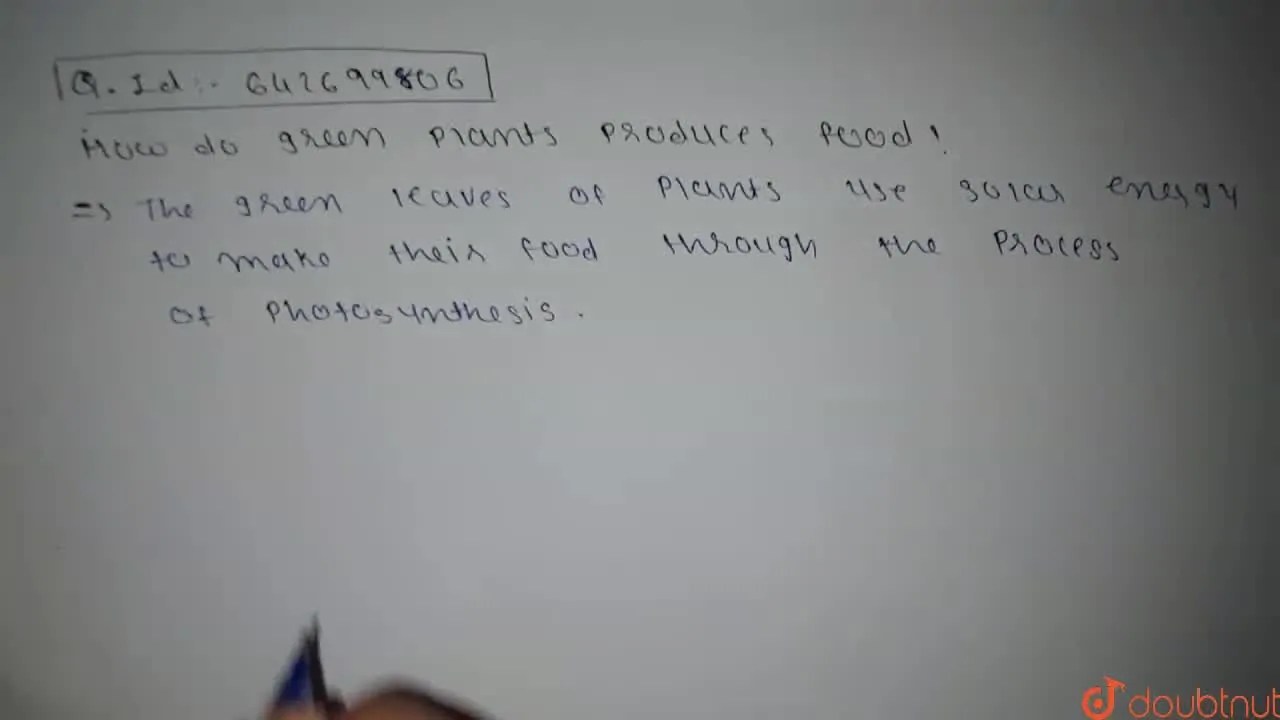 Q. Id :- 642699806
How do green plants produces food!
=> The green leaves of plants use solar energy
to make their food through the process
of photosynthesis.
doubtnut